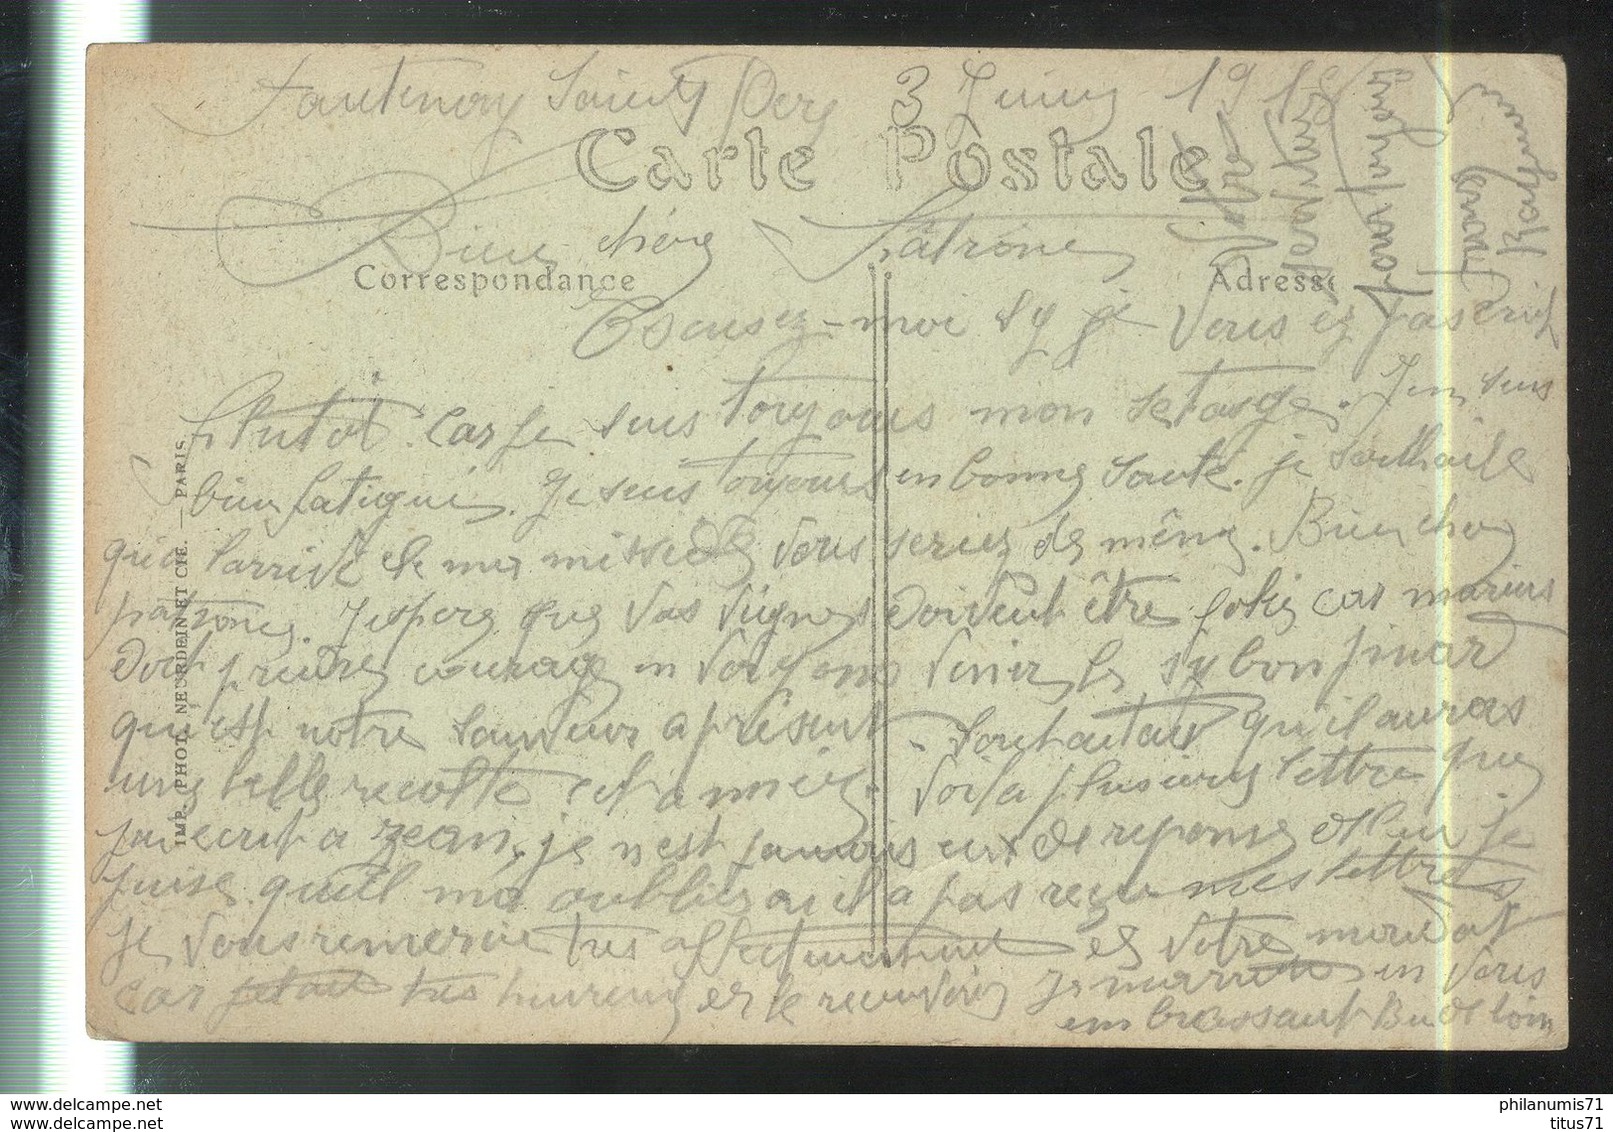 Fautenoy Saint Pere 3 Juin 1918
Carte Postale
Bien chère Patrone
Correspondance
Adresse
Escusez-moi sy je Vous ez pas crit
plutôt. Car je suis toujours mon setasge. J'en suis
bien fatigué. Je suis toujours en bonne santé. je southaite
qu'a larrivé de ma missede vous seriez de même. Bien chere
patrone. J'espere que Vos Vignes doivent être jolie car marius
doit pridre courage en Voiyons Venir le sy bon pinard
qu'est notre sauveur a présent. Souhaitait qu'il auras
une belle recolte cet année. Voila plusieurs lettre que
j'ai ecrit a Jean, je n'est jamais eux de reponse et bien je
puise quil m'a oublier ou il a pas reçu mes lettres
Je Vous remercie tres affectueusement et Votre mandat
car jetait tres heureux et le recevoir Je marrete en Vous
embrassant Bien de loin
Votre
Raymond
IMP. PHOT. NEURDEIN ET CIE. — PARIS.
www.delcampe.net
www.delcampe.net
philanumis71
titus71